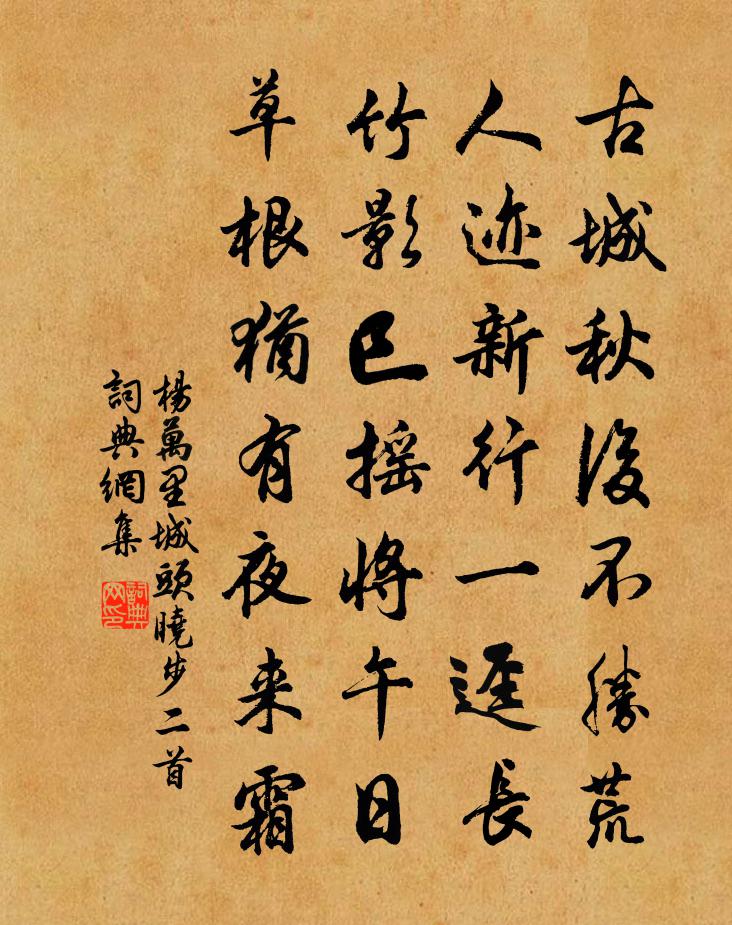 古城秋後不勝荒
人迹新行一逕長
竹影已摇將午日
草根猶有夜来霜
楊萬里城頭曉步二首
詞典網集
詞典网印